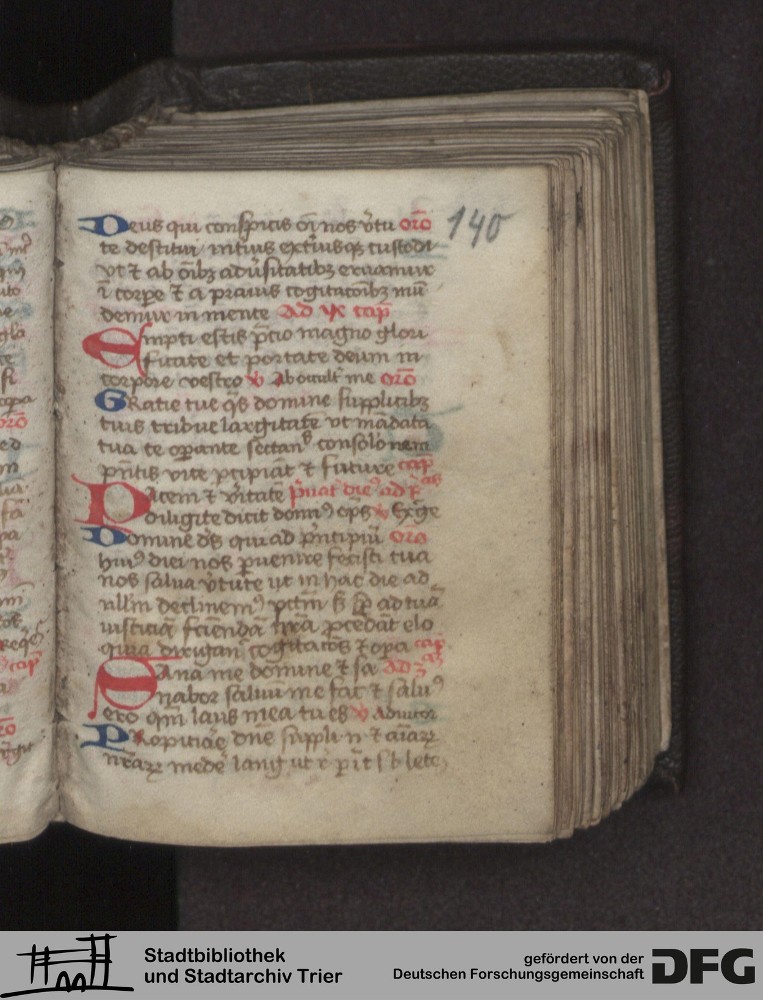 140
Deus qui conspicis oi nos vtu oro
te destitui intius extiusq custodi
vt ⁊ ab oibz adusitatibz eruamur
ī corpe ⁊ a prauis cogitacoibz mū
demur in mente Ad ix cap
Empti estis pcio magno glori
ficate et portate deum in
corpore vestro v Ab occult me oro
Gratie tue qs domine supplicibz
tuis tribue largitate vt mādata
tua te opante sectantes consolonem
pntis vite pcipiāt ⁊ future cap
Pacem ⁊ vitatē puat dieb ad pas
diligite dicit domi ops v Exge
Domine ds qui ad pncipiū oro
hui diei nos puenire fecisti tua
nos salua vtute ut in hac die ad
nllm declinem pctm sz sp ad tuā
iusticiā fciendā nra pcedāt elo
quia dirigant cogitacōs ⁊ opa cap
Sana me domine ⁊ sa ad 3as
nabor saluū me fac ⁊ salu
ero qm laus mea tu es v Adiutor
Propiciae dne suppli n ⁊ aiarz
nrarz mede lang
Stadtbibliothek
und Stadtarchiv Trier
gefördert von der
Deutschen Forschungsgemeinschaft
DFG